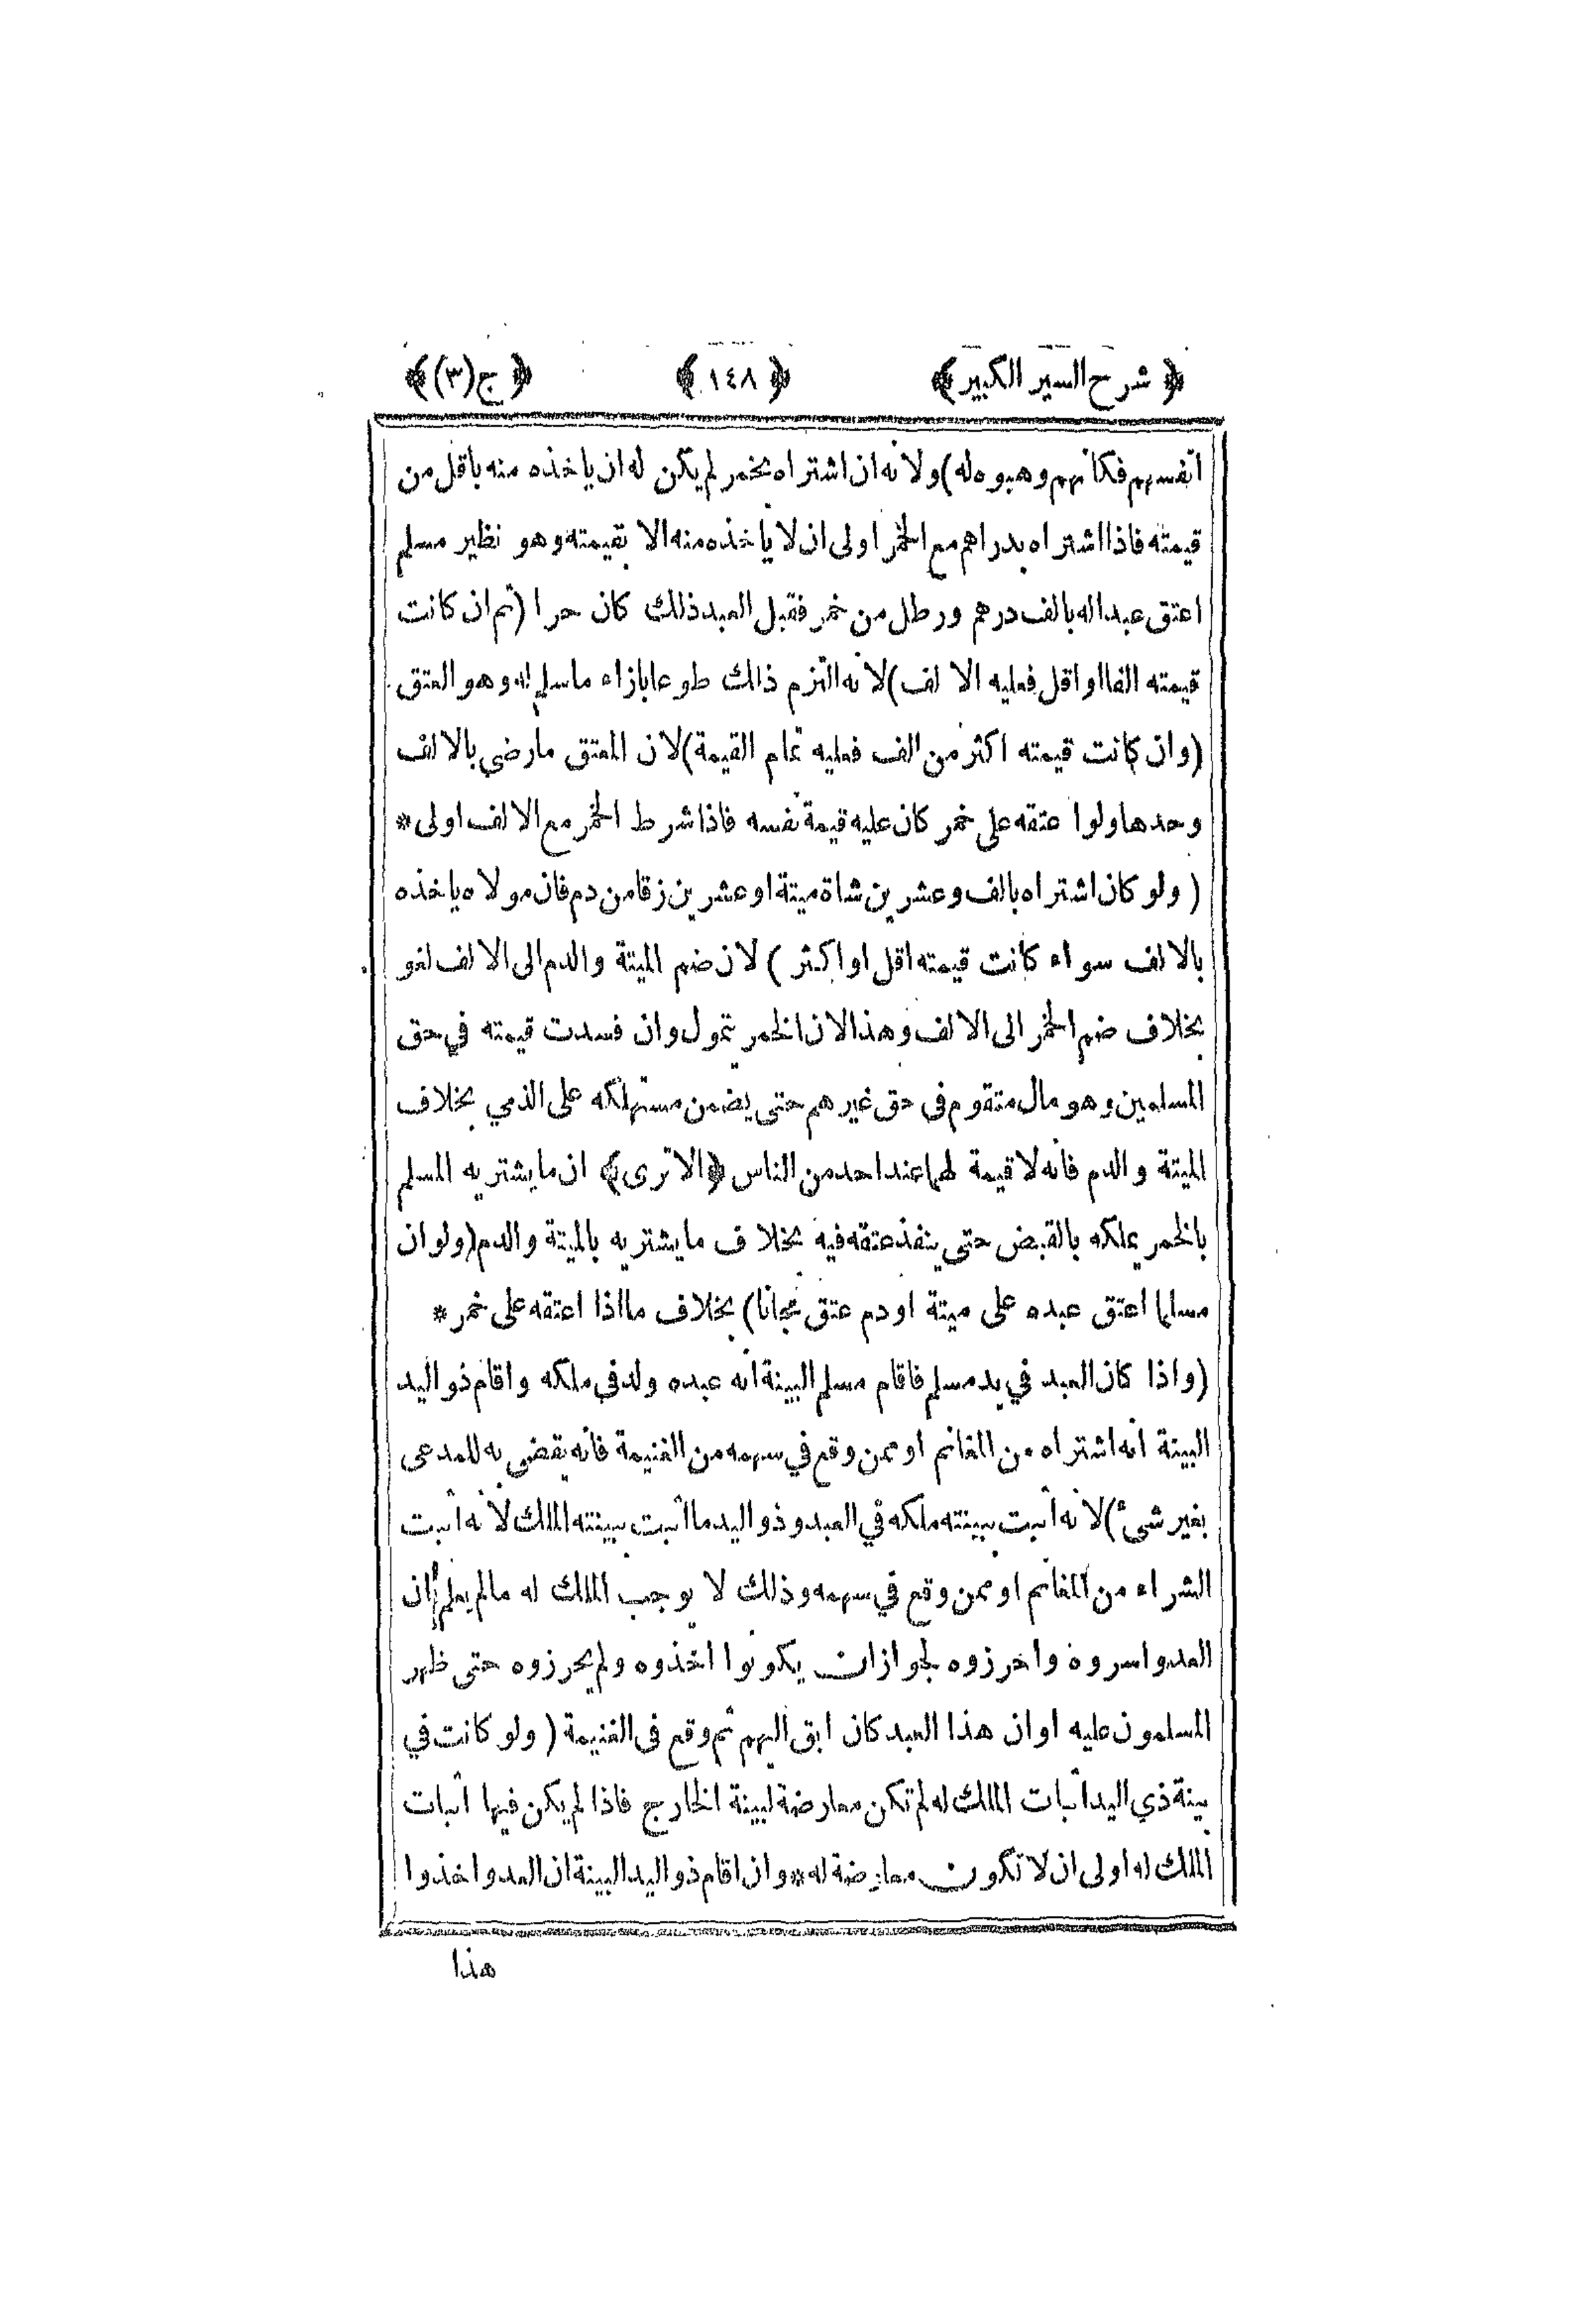 ﴿ شرح السير الكبير ﴾ ﴿ ١٤٨ ﴾ ﴿ ج (٣) ﴾
انفسهم فكأنهم وهبوه له) ولانه ان اشتراه بخمر لم يكن له ان ياخذه منه باقل من
قيمته فاذا اشتراه بدراهم مع الخمر اولى ان لا ياخذه منه الا بقيمته وهو نظير مسلم
اعتق عبدا له بالف درهم ورطل من خمر فقبل العبد ذلك كان حرا (ثم ان كانت
قيمته الفا او اقل فعليه الالف) لانه التزم ذلك طوعا بازاء ماسلم له وهو العتق
(وان كانت قيمته اكثر من الف فعليه تمام القيمة) لان المعتق مارضي بالالف
وحدها ولو اعتقه على خمر كان عليه قيمة نفسه فاذا شرط الخمر مع الالف اولى *
( ولو كان اشتراه بالف وعشرين شاة ميتة او عشرين زقا من دم فان مولاه ياخذه
بالالف سواء كانت قيمته اقل او اكثر ) لان ضم الميتة والدم الى الالف لغو
بخلاف ضم الخمر الى الالف وهذا لان الخمر تمول وان فسدت قيمته في حق
المسلمين وهو مال متقوم في حق غيرهم حتى يضمن مستهلكه على الذمي بخلاف
الميتة والدم فانه لا قيمة لهما عند احد من الناس ﴿الا ترى﴾ ان ما يشتريه المسلم
بالخمر يملكه بالقبض حتى ينفذ عتقه فيه بخلاف ما يشتريه بالميتة والدم (ولو ان
مسلما اعتق عبده على ميتة او دم عتق مجانا) بخلاف ما اذا اعتقه على خمر *
(واذا كان العبد في يد مسلم فاقام مسلم البينة انه عبده ولد في ملكه واقام ذو اليد
البينة انه اشتراه من المغانم او ممن وقع في سهمه من الغنيمة فانه يقضى به للمدعى
بغير شىء) لانه اثبت ببينته ملكه في العبد وذو اليد ما اثبت ببينته الملك لانه اثبت
الشراء من المغانم او ممن وقع في سهمه وذلك لا يوجب الملك له مالم يعلم ان
العدو اسروه واحرزوه لجواز ان يكونوا اخذوه ولم يحرزوه حتى ظهر
المسلمون عليه او ان هذا العبد كان ابق اليهم ثم وقع في الغنيمة ( ولو كانت في
بينة ذي اليد اثبات الملك له لم تكن معارضة لبينة الخارج فاذا لم يكن فيها اثبات
الملك له اولى ان لا تكون معارضة له * وان اقام ذو اليد البينة ان العدو اخذوا
هذا